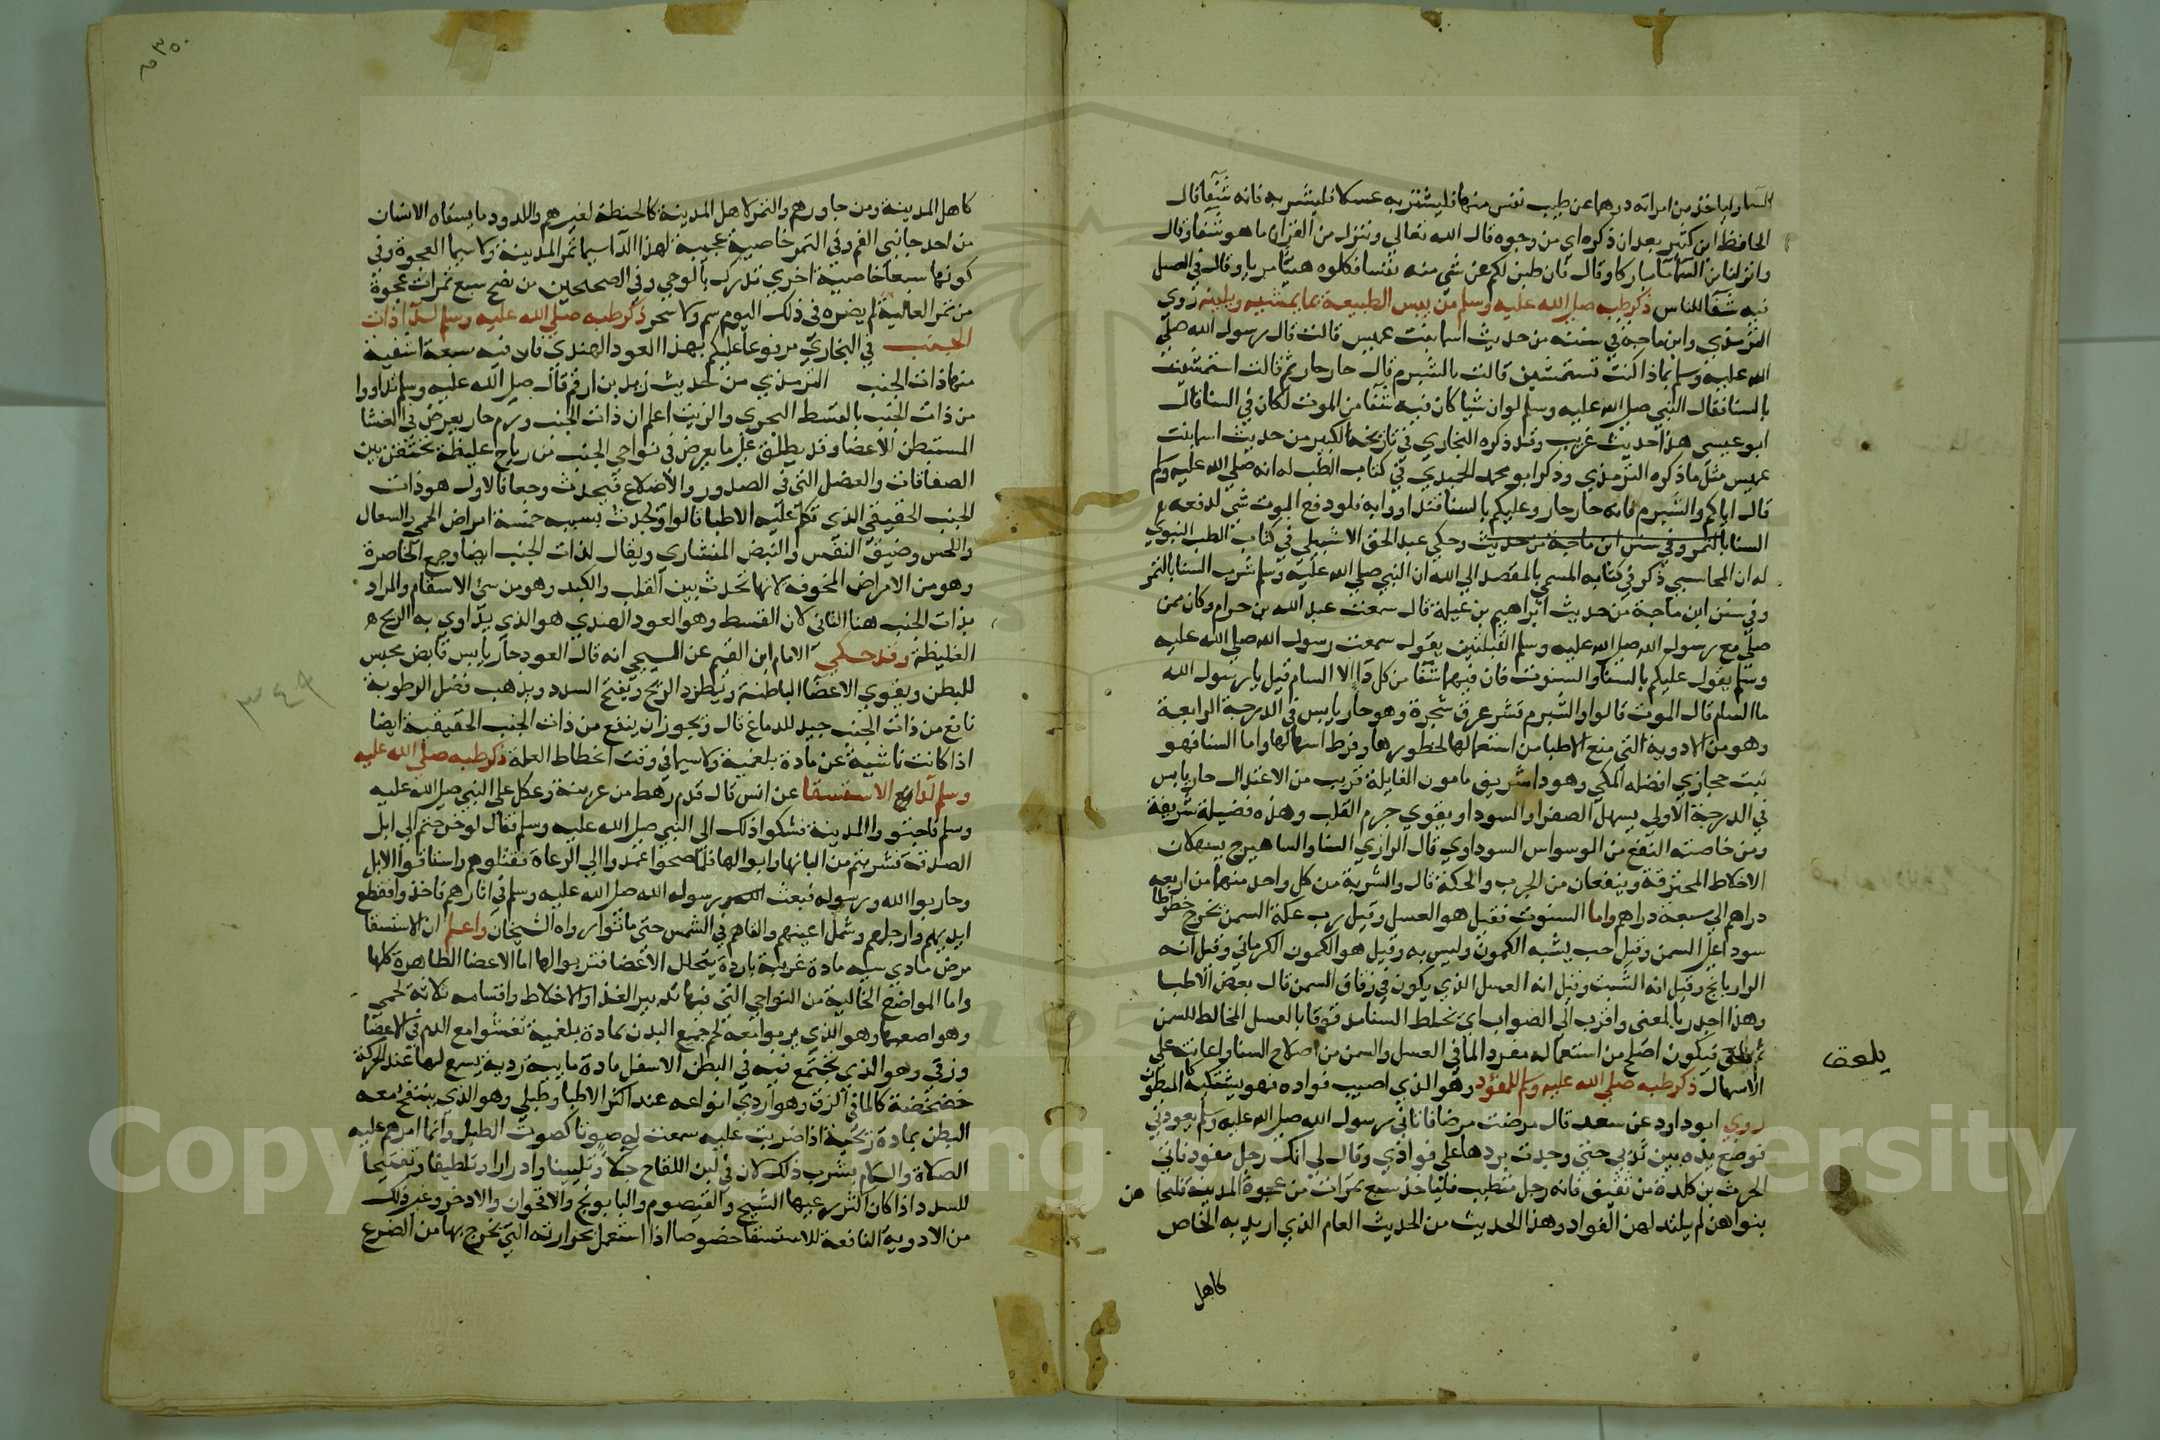 السماء ولياخذ من امراته درهما عن طيب نفس منها فليشتر به عسلا فليشربه فانه شفآ قال
الحافظ ابن كثير بعد ان ذكره اي من وجوه قال الله تعالى وننزل من القران ما هو شفا وقال
وانزلنا من السما ما مباركا وقال فان طبن لكم عن شي منه نفسا فكلوه هنيا مريا وقال في العسل
فيه شفا للناس ذكر طبه صلى الله عليه وسلم من يبس الطبيعة بما يمشيه ويلينه روي
الترمذي وابن ماجة في سننه من حديث اسما بنت عميس قالت قال رسول الله صلى
الله عليه وسلم بماذا كنت تستمشين قالت بالشبرم قال حار جار ثم قالت استمشيت
بالسنا فقال النبي صلى الله عليه وسلم لو ان شيا كان فيه شفا من الموت لكان في السنا قال
ابو عيسى هذا حديث غريب وقد ذكره البخاري في تاريخه الكبير من حديث اسما بنت
عميس مثل ما ذكره الترمذي وذكر ابو محمد الحميدي في كتاب الطب له انه صلى الله عليه وسلم
قال اياكم والشبرم فانه حار جار وعليكم بالسنا فتداووا به فلو دفع الموت شي لدفعه
السنا بالتمر وفي سنن ابن ماجة من حديث وحكي عبد الحق الاشبيلي في كتاب الطب النبوي
له ان المحاسبي ذكر في كتابه المسمي بالمقصد الي الله ان النبي صلى الله عليه وسلم شرب السنا بالتمر
وفي سنن ابن ماجة من حديث ابراهيم بن عبلة قال سمعت عبد الله بن حرام وكان ممن
صلى مع رسول الله صلى الله عليه وسلم القبلتين يقول سمعت رسول الله صلى الله عليه
وسلم يقول عليكم بالسنا والسنوت فان فيهما شفا من كل دا الا السام قيل يا رسول الله
ما السام قال الموت قالوا والشبرم قشر عرق شجرة وهو حار يابس في الدرجة الرابعة
وهو من الادوية التي منع الاطبا من استعمالها لخطورها وفرط اسهالها واما السنا فهو
نبت حجازي افضله المكي وهو دا شريف مامون الغايلة قريب من الاعتدال حار يابس
في الدرجة الاولى يسهل الصفرا والسودا ويقوي جرم القلب وهذه فضيلة شريفة
ومن خاصته النفع من الوسواس السوداوي قال الرازي السنا والساهيرج يسهلان
الاخلاط المحترقة وينفعان من الجرب والحكة قال والشربة من كل واحد منهما من اربعة
دراهم الى سبعة دراهم واما السنوت فقيل هو العسل وقيل رب عكة السمن يخرج خطوطا
سودا على السمن وقيل حب يشبه الكمون وليس به وقيل هو الكمون الكرماني وقيل انه
الرازيانج وقيل انه الشبت وقيل انه العسل الذي يكون في زقاق السمن قال بعض الاطبا
وهذا اجدر بالمعنى واقرب الى الصواب اي يخلط السنا مدقوقا بالعسل المخالط للسمن
ثم يلعق فيكون اصلح من استعماله مفردا لما في العسل والسمن من اصلاح السنا واعانته على
يلعق
الاسهال ذكر طبه صلى الله عليه وسلم للمفؤد وهو الذي اصيب فواده فهو يشتكيه كالمبطون
روي ابو داود عن سعد قال مرضت مرضا فاتاني رسول الله صلى الله عليه وسلم يعودني
فوضع يده بين ثديي حتى وجدت بردها على فوادي وقال لي انك رجل مفود فات
الحرث بن كلدة من ثقيف فانه رجل متطبب فلياخذ سبع تمرات من عجوة المدينة فليجا هن
بنواهن ثم يلدك بهن الفواد وهذا الحديث من الحديث العام الذي اريد به الخاص
كاهل
٣٥٠
كاهل المدينة ومن جاورهم والتمر لاهل المدينة كالحنطة لغيرهم واللدود ما يسقاه الانسان
من احد جانبي الفم وفي التمر خاصية عجيبة لهذا الدآ سيما تمر المدينة ولا سيما العجوة وفي
كونها سبعا خاصية اخري تدرك بالوحي وفي الصحيحين من تصبح سبع تمرات عجوة
من تمر العالية لم يضره في ذلك اليوم سم ولا سحر ذكر طبه صلى الله عليه وسلم لدآ ذات
الجنب في البخاري مرفوعا عليكم بهذا العود الهندي فان فيه سبعة اشفية
منها ذات الجنب الترمذي من حديث زيد بن ارقم قال صلى الله عليه وسلم تداووا
من ذات الجنب بالقسط البحري والزيت اعلم ان ذات الجنب ورم حار يعرض في الغشا
المستبطن للاعضا وقد يطلق على ما يعرض في نواحي الجنب من رياح غليظة تحتقن بين
الصفاقات والعضل التي في الصدور والاضلاع فتحدث وجعا فالاول هو ذات
الجنب الحقيقي الذي تكلم عليه الاطبا قالوا ويحدث بسببه خمسة امراض الحمى والسعال
والنخس وضيق النفس والنبض المنشاري ويقال لذات الجنب ايضا وجع الخاصرة
وهو من الامراض المخوفة لانها تحدث بين القلب والكبد وهو من سئ الاسقام والمراد
بذات الجنب هنا الثاني لان القسط وهو العود الهندي هو الذي يداوي به الريح
الغليظة وقد حكي الامام ابن القيم عن المسيحي انه قال العود حار يابس قابض يحبس
للبطن ويقوي الاعضا الباطنة ويطرد الريح ويفتح السدد ويذهب فضل الرطوبة
٣٤٩
نافع من ذات الجنب جيد للدماغ قال ويجوز ان ينفع من ذات الجنب الحقيقية ايضا
اذا كانت ناشية عن مادة بلغمية ولا سيما في وقت انحطاط العلة ذكر طبه صلى الله عليه
وسلم لدآ الاستسقا عن انس قال قدم رهط من عرينة وعكل على النبي صلى الله عليه
وسلم فاجتووا المدينة فشكوا ذلك الى النبي صلى الله عليه وسلم فقال لو خرجتم الى ابل
الصدقة فشربتم من البانها وابوالها فلما صحوا عمدوا الي الرعاة فقتلوهم واستاقوا الابل
وحاربوا الله ورسوله فبعث رسول الله صلى الله عليه وسلم في اثارهم فاخذوا فقطع
ايديهم وارجلهم وسمل اعينهم والقاهم في الشمس حتى ماتوا رواه الشيخان واعلم ان الاستسقا
مرض مادي سببه مادة غريبة باردة يتخلل الاعضا فتربوا لها اما الاعضا الظاهرة كلها
واما المواضع الخالية من النواحي التي فيها تدبير الغذا والاخلاط واقسامه ثلاثة لحمي
وهو اصعبها وهو الذي يربوا معه لحم جميع البدن بمادة بلغمية تفشوا مع الدم في الاعضا
وزقي وهو الذي يجتمع فيه في البطن الاسفل مادة مايية ردية يسمع لها عند الحركة
خضخضة كالما في الزق وهو اردي انواعه عند اكثر الاطبا وطبلي وهو الذي ينتفخ معه
البطن بمادة ريحية اذا ضربت عليه سمعت له صوتا كصوت الطبل وانما امرهم عليه
الصلاة والسلام بشرب ذلك لان في لبن اللقاح جلاء وتليينا وادرارا وتلطيفا وتفتيحا
للسدد اذا كان اكثر رعيها الشيح والقيصوم والبابونج والاقحوان والاذخر وغير ذلك
من الادوية النافعة للاستسقا خصوصا اذا استعمل بحرارته التي يخرج بها من الضرع
Copyright © King Saud University